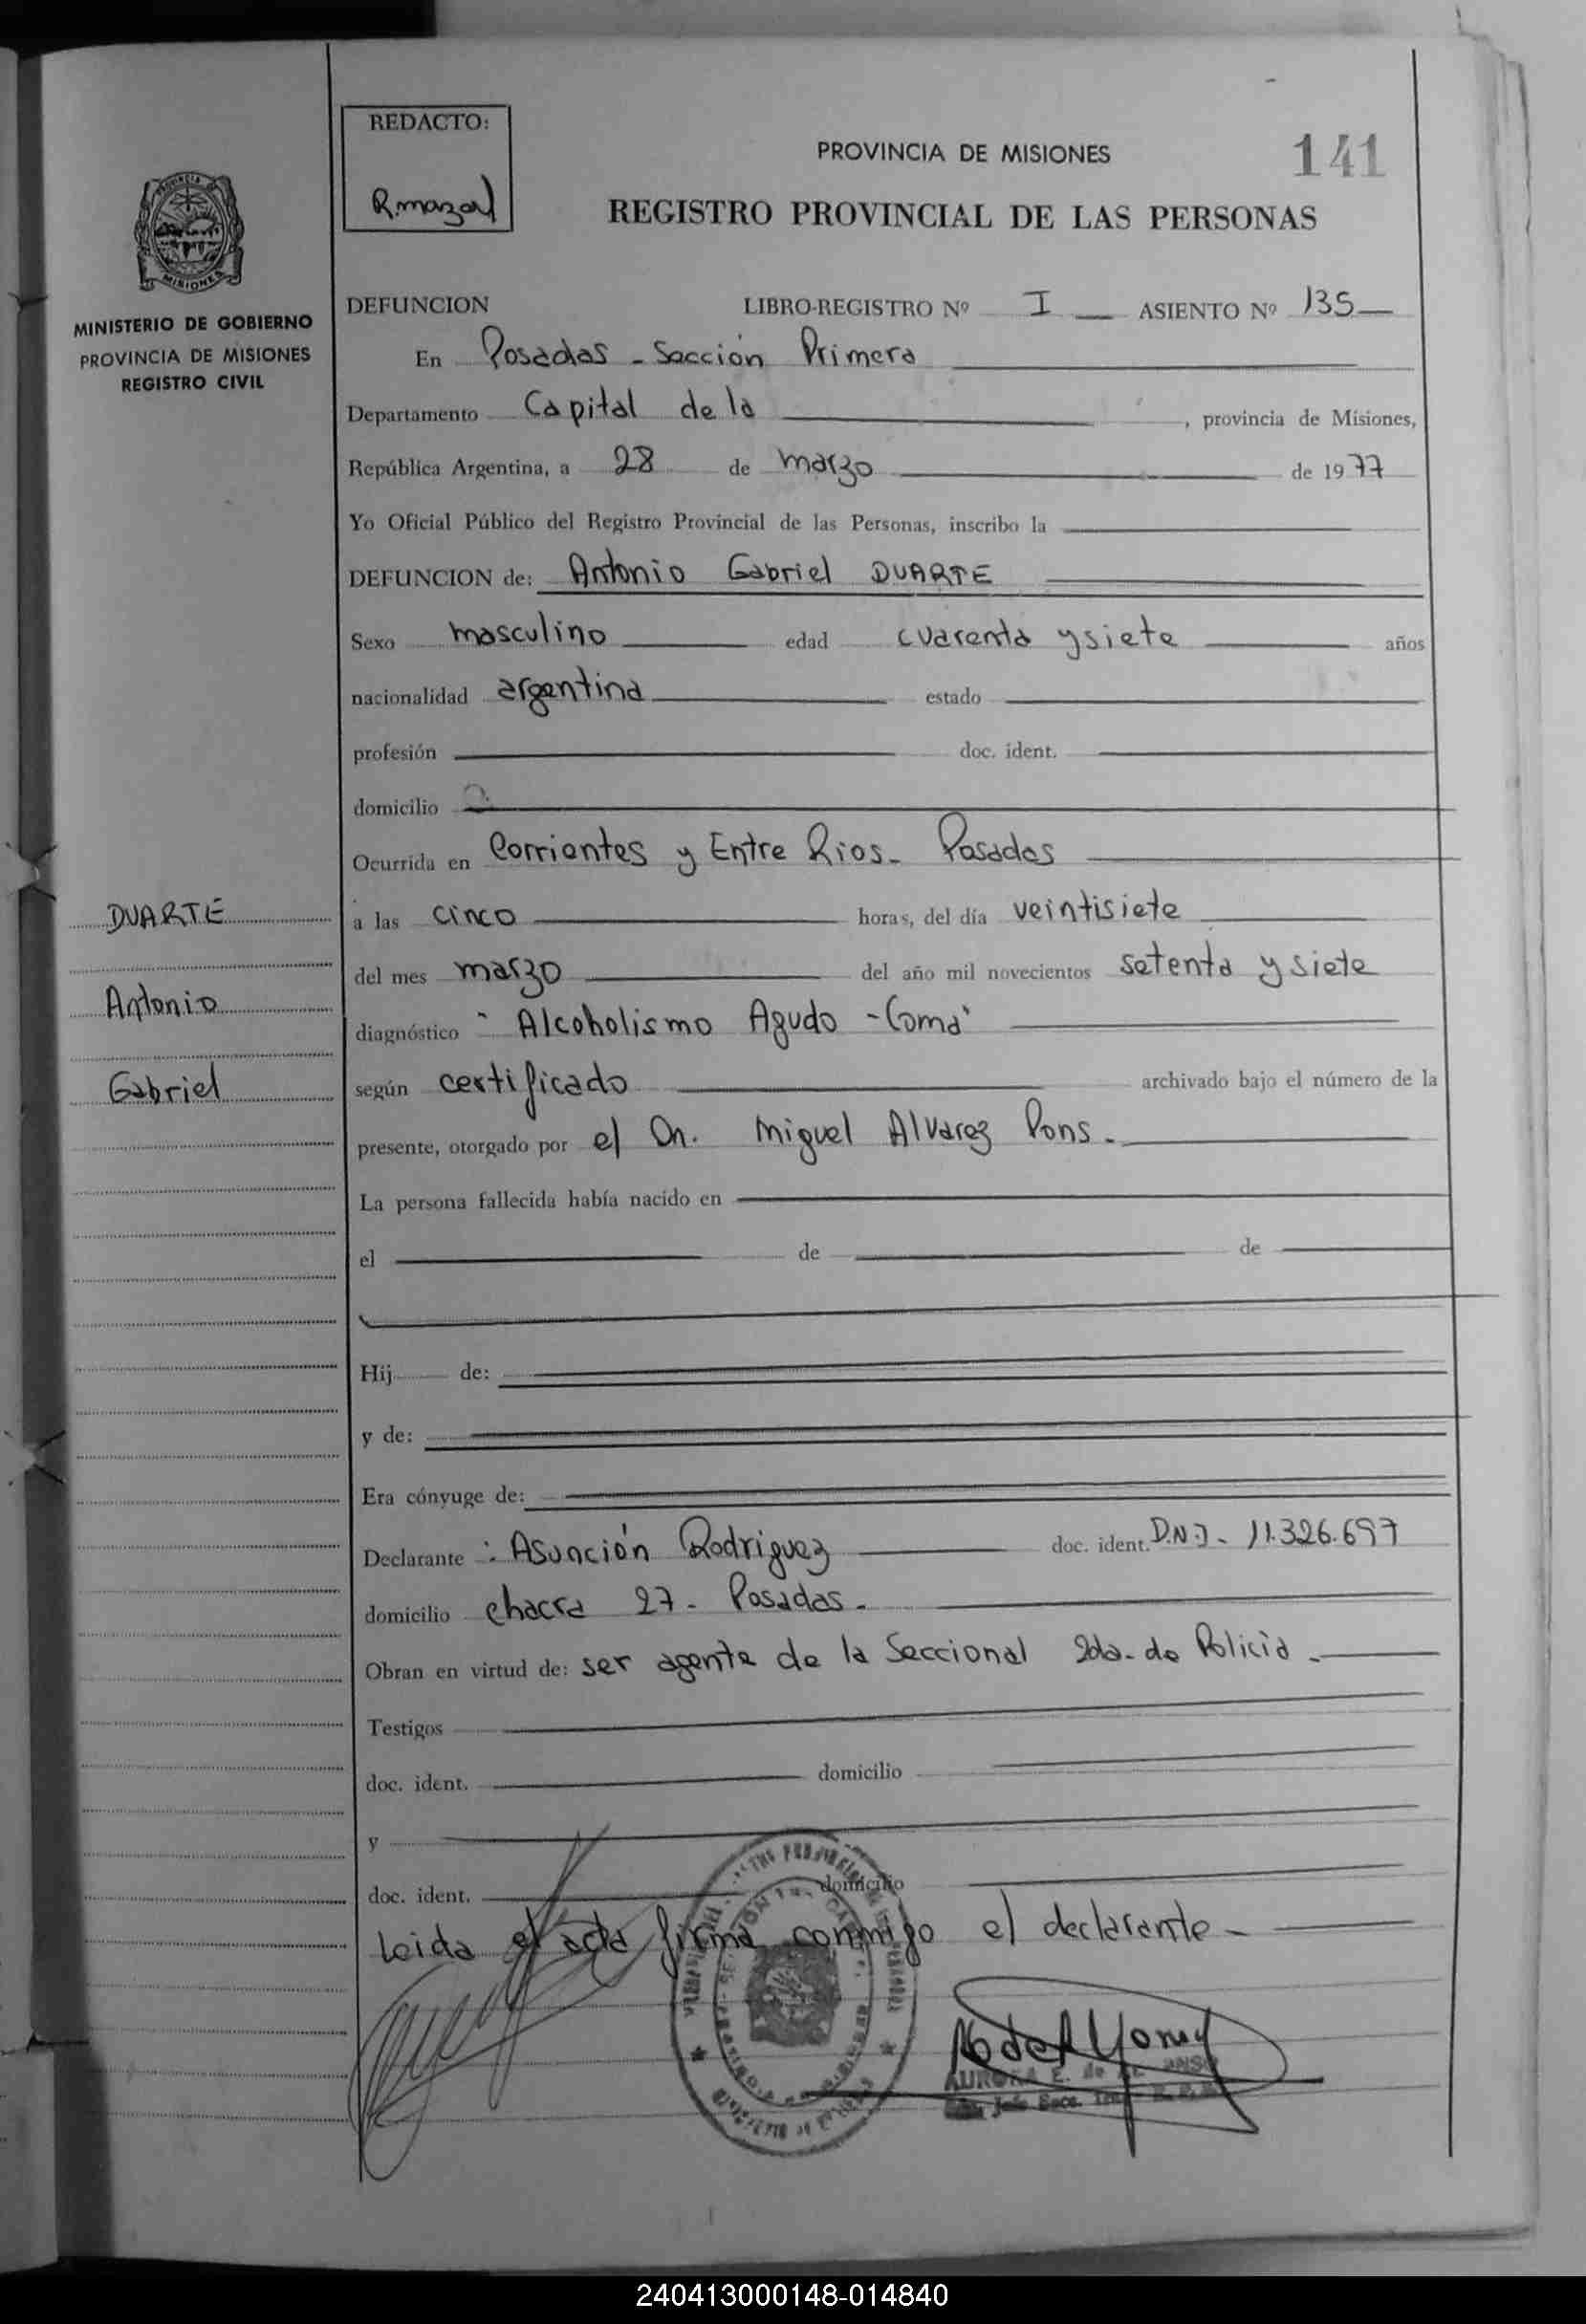 REDACTO:
R. marzal
PROVINCIA DE MISIONES
141
REGISTRO PROVINCIAL DE LAS PERSONAS
MISIONES
MINISTERIO DE GOBIERNO
PROVINCIA DE MISIONES
REGISTRO CIVIL
DEFUNCION LIBRO-REGISTRO Nº I ASIENTO Nº 135
En Posadas - Sección Primera
Departamento Capital de la , provincia de Misiones,
República Argentina, a 28 de marzo de 1977
Yo Oficial Público del Registro Provincial de las Personas, inscribo la
DEFUNCION de: Antonio Gabriel DUARTE
Sexo masculino edad cuarenta y siete años
nacionalidad argentina estado
profesión doc. ident.
domicilio
Ocurrida en Corrientes y Entre Rios - Posadas
DUARTE
Antonio
Gabriel
a las cinco horas, del día veintisiete
del mes marzo del año mil novecientos setenta y siete
diagnóstico " Alcoholismo Agudo - Coma"
según certificado archivado bajo el número de la
presente, otorgado por el Dn. Miguel Alvarez Pons.
La persona fallecida había nacido en
el de de
Hij de:
y de:
Era cónyuge de:
Declarante : Asunción Rodriguez doc. ident. D.N.I - 11.326.697
domicilio chacra 27 - Posadas.
Obran en virtud de: ser agente de la Seccional 2da. de Policia.
Testigos
doc. ident. domicilio
y
doc. ident. domicilio
Leida el acta firma conmigo el declarante -
AURORA E. de
240413000148-014840